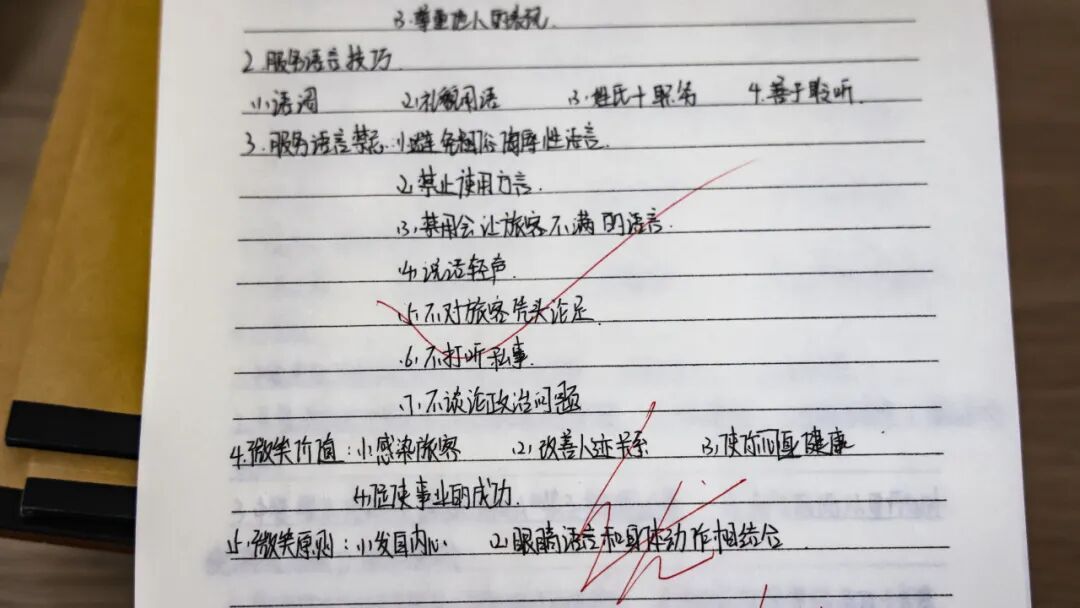 3.尊重他人的表现
2.服务语言技巧
(1)语调 (2)礼貌用语 (3)姓氏+职务 4.善于聆听.
3.服务语言禁忌:(1)避免粗俗侮辱性语言.
(2)禁止使用方言.
(3)禁用会让旅客不满的语言.
(4)说话轻声.
(5)不对旅客凭头论足.
(6)不打听私事.
(7)不谈论政治问题
4.微笑价值:(1)感染旅客 (2)改善人际关系 (3)使你心里健康
(4)促使事业的成功.
5.微笑原则:(1)发自内心. (2)眼睛语言和身体动作相结合